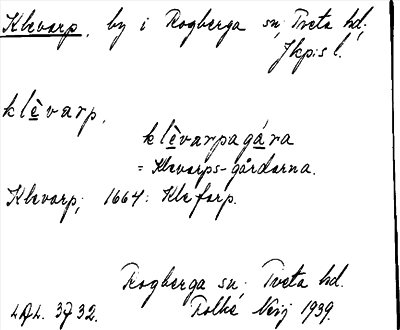 Klevarp, by i Rogberga sn; Tveta hd;
Jkp:s l.
klèvarp,
klèvarpagára
= Klevarps-gårdarna.
Klevarp; 1664: Klefarp.
Rogberga sn; Tveta hd.
3732. Folke 1939.